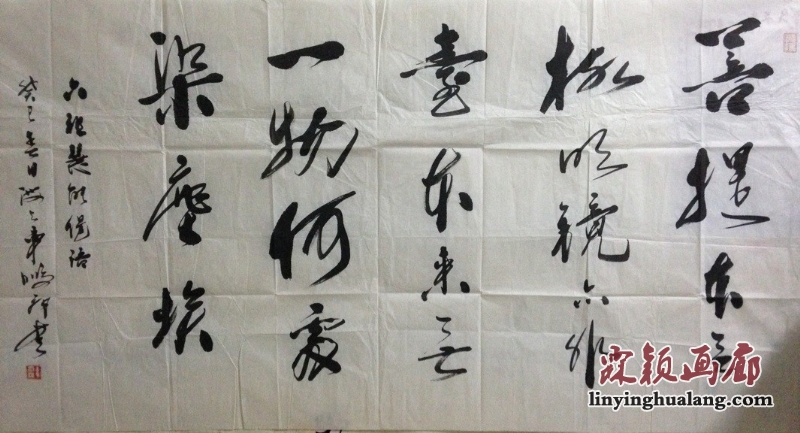 菩提本无
树明镜亦非
臺本来无
一物何處
染塵埃
六祖慧能偈语
癸巳春日 書
霖颖画廊
linyinghualang.com